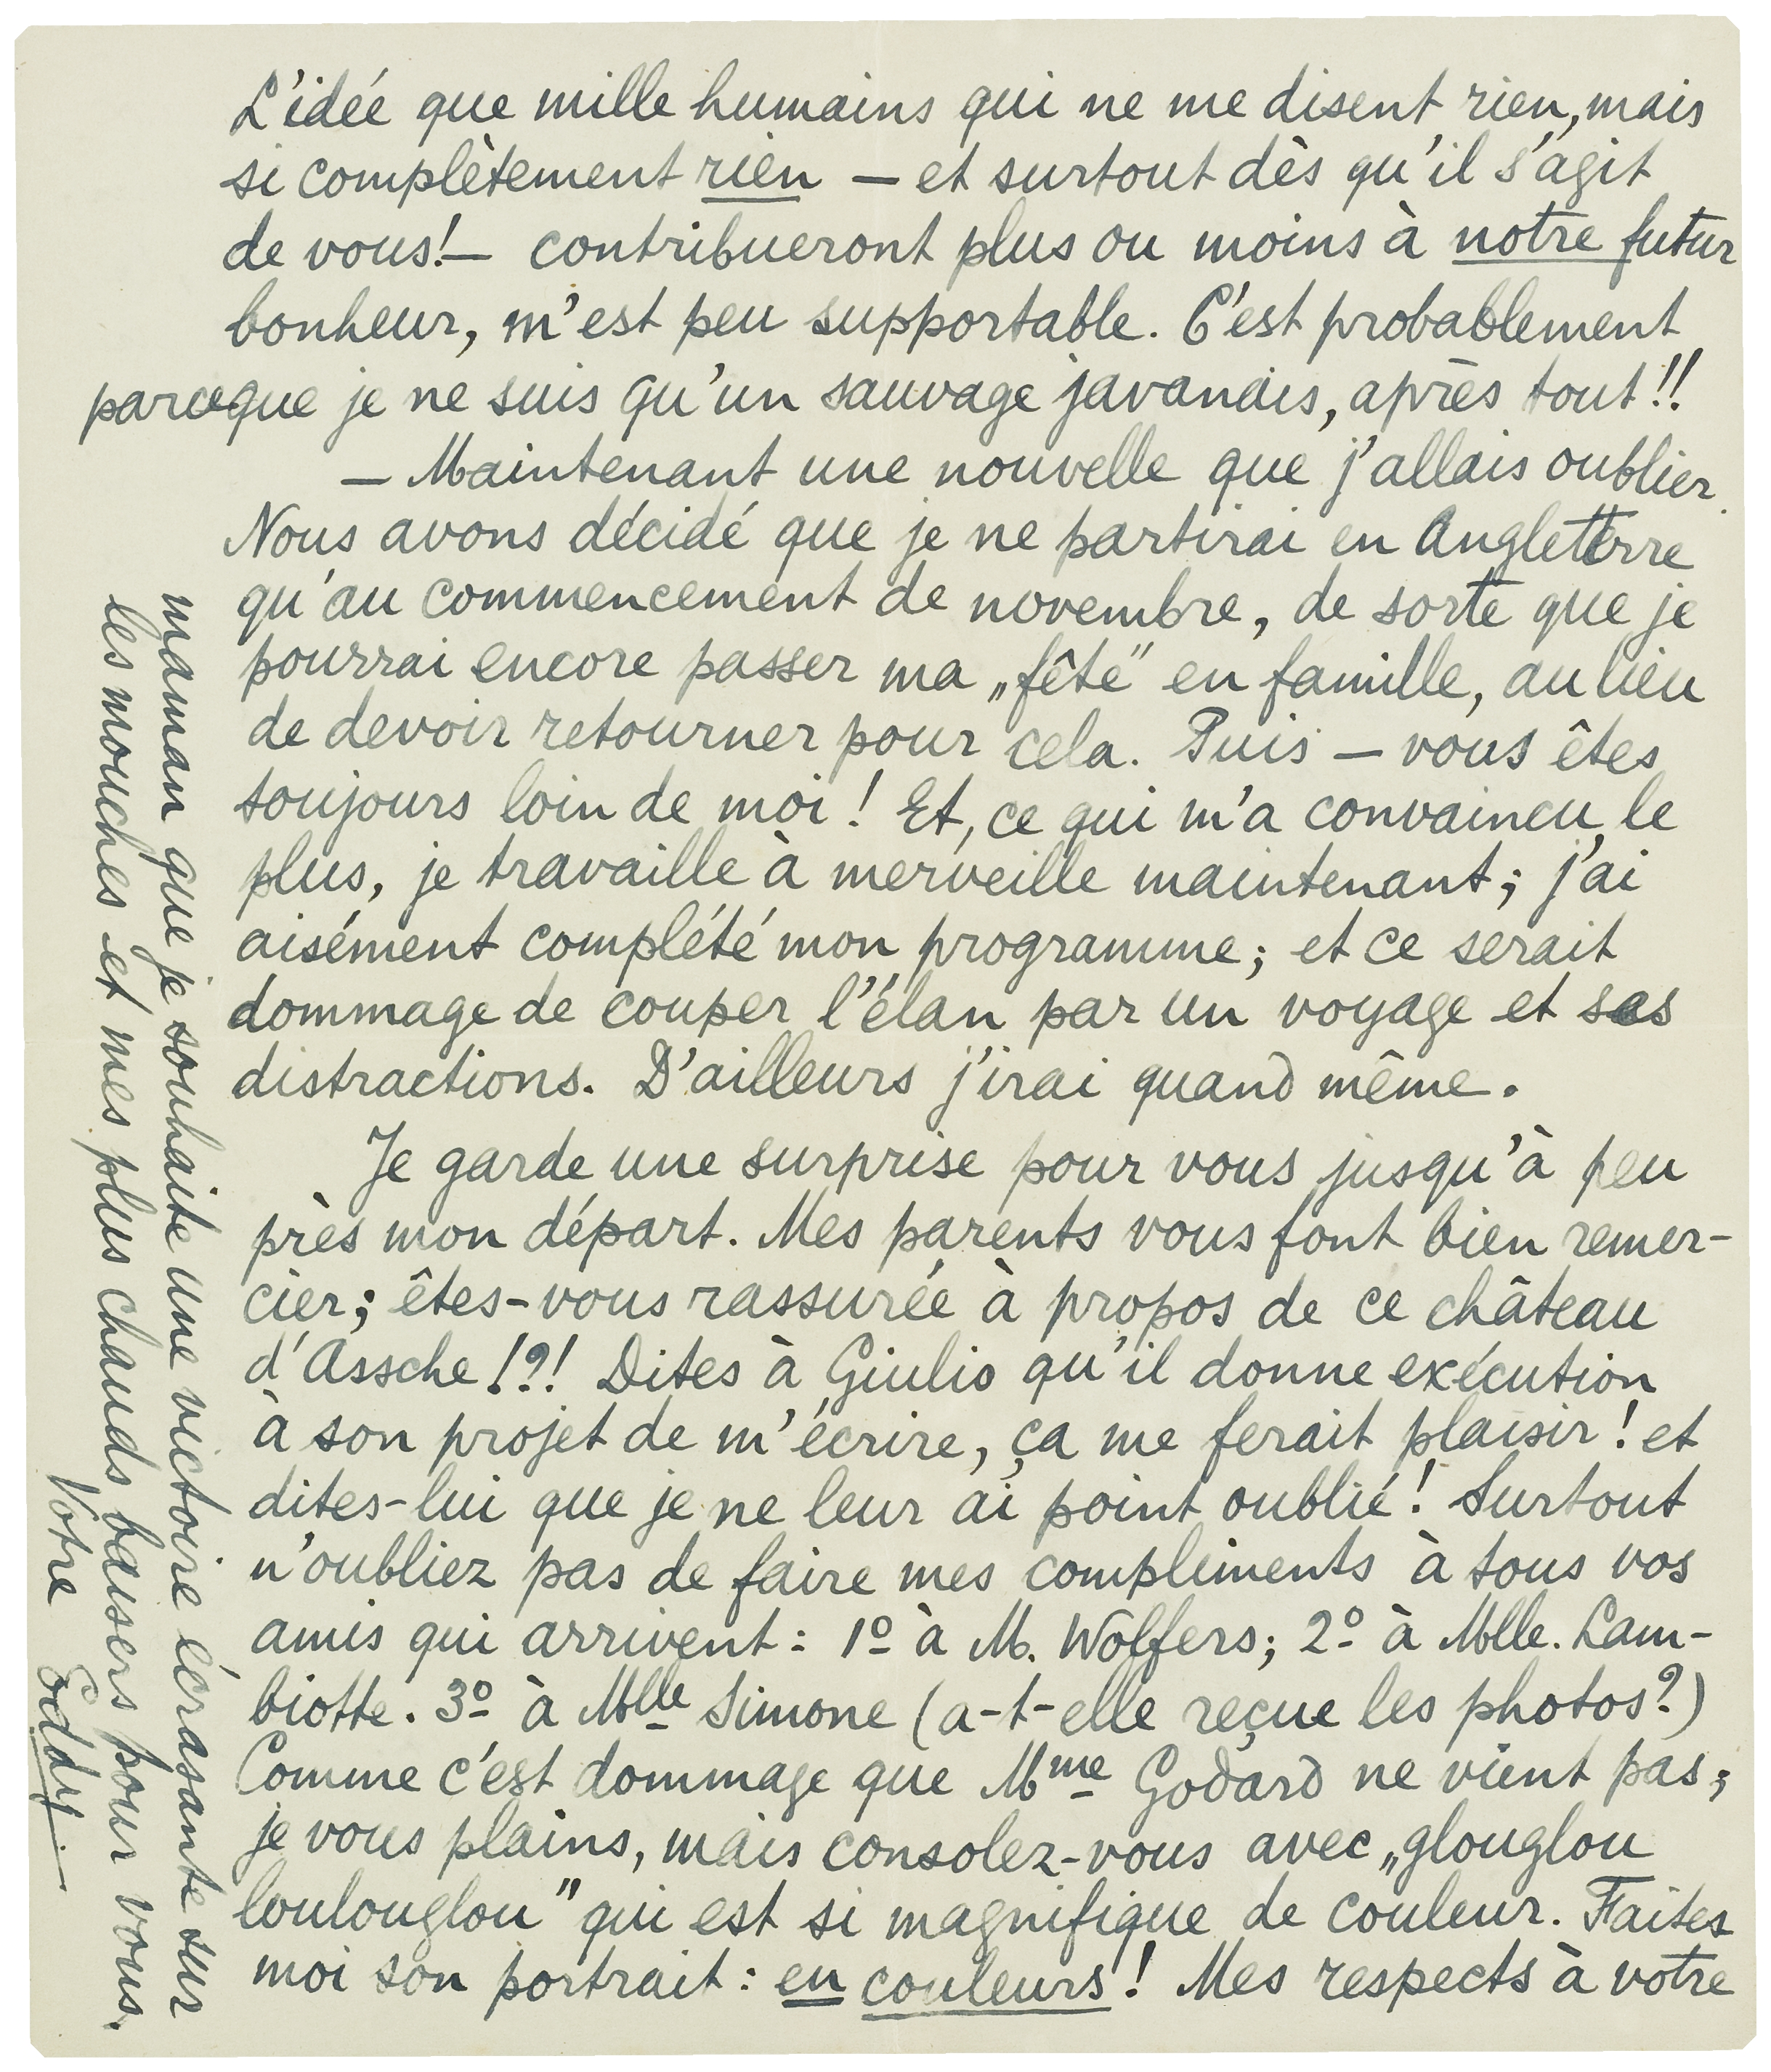 L'idée que mille humains qui ne me disent rien, mais
si complètement rien — et surtout dès qu'il s'agit
de vous! — contribueront plus ou moins à notre futur
bonheur, m'est peu supportable. C'est probablement
parceque je ne suis qu'un sauvage javanais, après tout!!
— Maintenant une nouvelle que j'allais oublier.
Nous avons décidé que je ne partirai en Angleterre
qu'au commencement de novembre, de sorte que je
pourrai encore passer ma „fête" en famille, au lieu
de devoir retourner pour cela. Puis — vous êtes
toujours loin de moi! Et, ce qui m'a convaincu le
plus, je travaille à merveille maintenant; j'ai
aisément complété mon programme; et ce serait
dommage de couper l'élan par un voyage et ses
distractions. D'ailleurs j'irai quand même.
Je garde une surprise pour vous jusqu'à peu
près mon départ. Mes parents vous font bien remer-
cier; êtes-vous rassurée à propos de ce château
d'Assche!?! Dites à Giulio qu'il donne exécution
à son projet de m'écrire, ça me ferait plaisir! et
dites-lui que je ne leur ai point oublié! Surtout
n'oubliez pas de faire mes compliments à tous vos
amis qui arrivent: 1º à M. Wolfers; 2º à Mlle. Lam-
biotte. 3º à Mlle Simone (a-t-elle reçue les photos?)
Comme c'est dommage que Mme Godard ne vient pas;
je vous plains, mais consolez-vous avec „glouglou
loulouglou" qui est si magnifique de couleur. Faites
moi son portrait: en couleurs! Mes respects à votre
maman que je souhaite une victoire écrasante sur
les mouches et mes plus chauds baisers pour vous.
Votre Eddy.